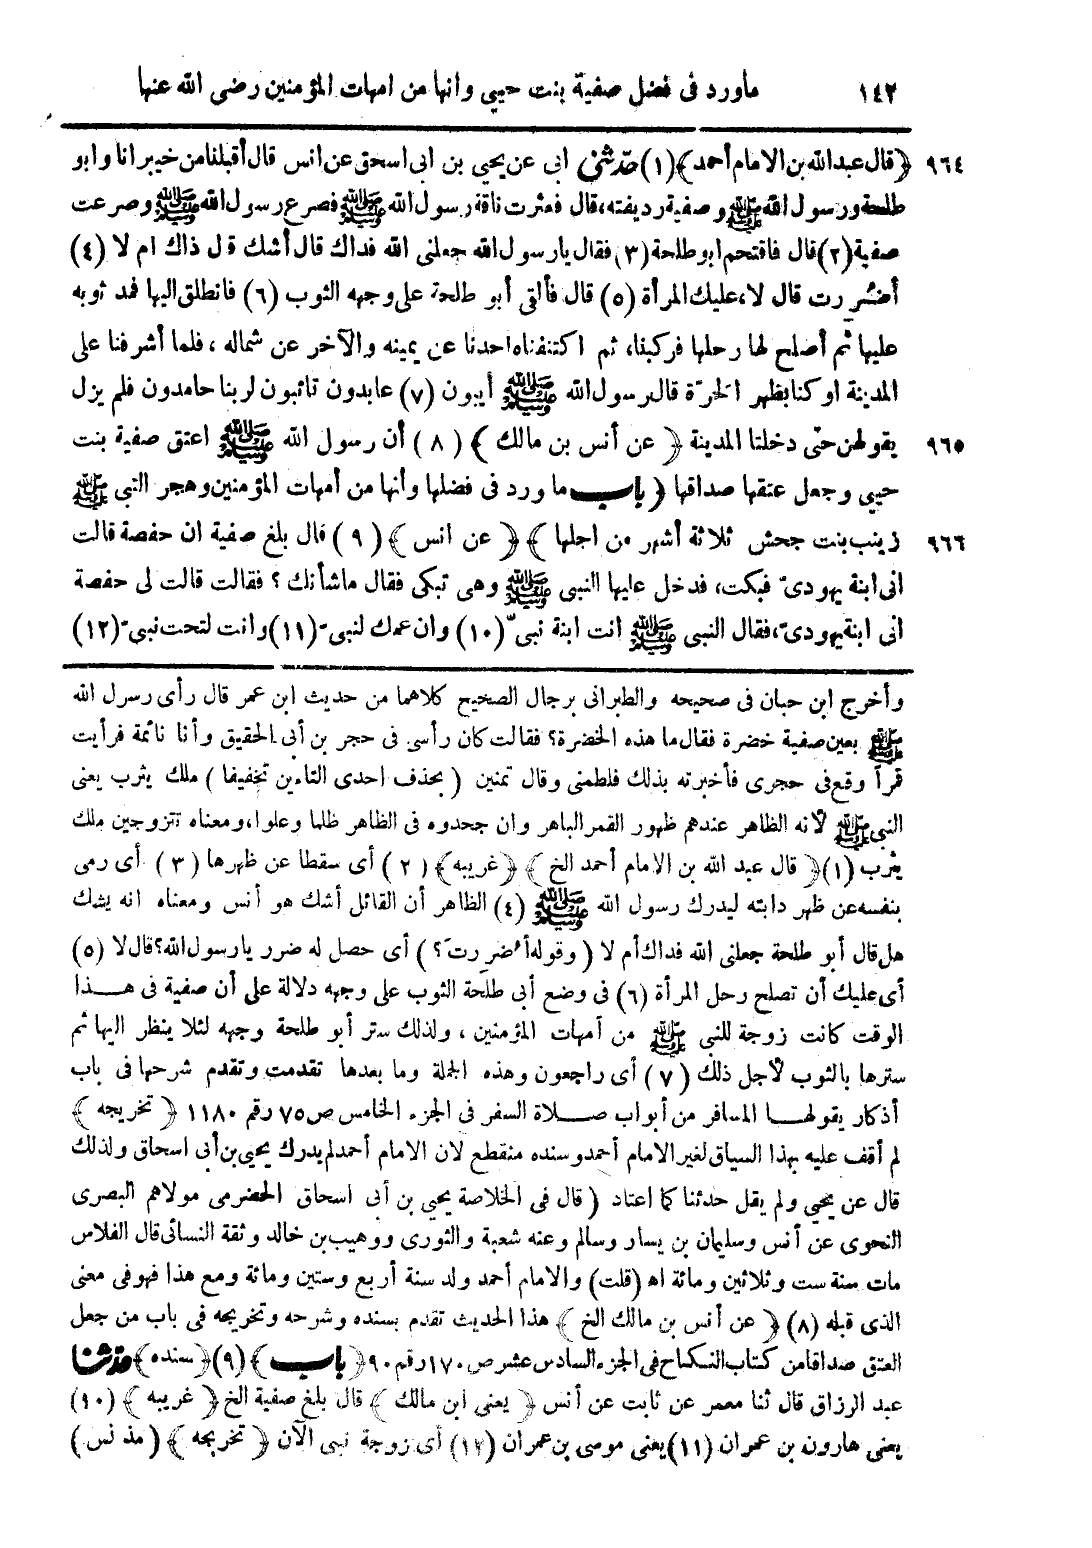 ١٤٢ ماورد فى فضل صفية بنت حيي وانها من امهات المؤمنين رضى الله عنها
٩٦٤ ﴿ قال عبد الله بن الامام أحمد ﴾ (١) حدّثنى ابى عن يحيى بن ابى اسحق عن انس قال أقبلنا من خيبر انا وابو
طلحة ورسول الله ﷺ وصفية رديفته، قال فعثرت ناقة رسول الله ﷺ فصرع رسول الله ﷺ وصرعت
صفية (٢) قال فاقتحم ابو طلحة (٣) فقال يا رسول الله جعلنى الله فداك قال أشك قال ذاك ام لا (٤)
أضُررت قال لا، عليك المرأة (٥) قال فألقى أبو طلحة على وجهه الثوب (٦) فانطلق اليها فمد ثوبه
عليها ثم أصلح لها رحلها فركبنا، ثم اكتنفناه احدنا عن يمينه والآخر عن شماله ، فلما أشرفنا على
المدينة او كنا بظهر الحرّة قال رسول الله ﷺ آيبون (٧) عابدون تائبون لربنا حامدون فلم يزل
٩٦٥ يقولهن حتّى دخلنا المدينة ﴿ عن أنس بن مالك ﴾ (٨) أن رسول الله ﷺ اعتق صفية بنت
حيى وجعل عتقها صداقها ﴿ باب ما ورد فى فضلها وأنها من أمهات المؤمنين وهجر النبى ﷺ
٩٦٦ زينب بنت جحش ثلاثة أشهر من اجلها ﴾ ﴿ عن انس ﴾ (٩) قال بلغ صفية ان حفصة قالت
انى ابنة يهودىّ فبكت، فدخل عليها النبى ﷺ وهى تبكى فقال ماشأنك ؟ فقالت قالت لى حفصة
انى ابنة يهودىّ، فقال النبى ﷺ انت ابنة نبىّ (١٠) وان عمك لنبىّ (١١) وانت لتحت نبىّ (١٢)
وأخرج ابن حبان فى صحيحه والطبرانى برجال الصحيح كلاهما من حديث ابن عمر قال رأى رسول الله
ﷺ بعين صفية خضرة فقال ما هذه الخضرة؟ فقالت كان رأسى فى حجر بن أبى الحقيق وأنا نائمة فرأيت
قمرآ وقع فى حجرى فأخبرته بذلك فلطمنى وقال تمنين ( بحذف احدى التاءين تخفيفا ) ملك يثرب يعنى
النبى ﷺ لأنه الظاهر عندهم ظهور القمر الباهر وان جحدوه فى الظاهر ظلما وعلوا، ومعناه تتزوجين ملك
يثرب (١) ﴿ قال عبد الله بن الامام أحمد الخ ﴾ ﴿ غريبه ﴾ (٢) أى سقطا عن ظهرها (٣) أى رمى
بنفسه عن ظهر دابته ليدرك رسول الله ﷺ (٤) الظاهر أن القائل أشك هو أنس ومعناه انه يشك
هل قال أبو طلحة جعلنى الله فداك أم لا ( وقوله أضُررتَ؟ ) أى حصل له ضرر يا رسول الله؟ قال لا (٥)
أى عليك أن تصلح رحل المرأة (٦) فى وضع أبى طلحة الثوب على وجهه دلالة على أن صفية فى هـذا
الوقت كانت زوجة للنبى ﷺ من أمهات المؤمنين ، ولذلك ستر أبو طلحة وجهه لئلا ينظر اليها ثم
سترها بالثوب لأجل ذلك (٧) أى راجعون وهذه الجملة وما بعدها تقدمت وتقدم شرحها فى باب
أذكار يقولهـا المسافر من أبواب صـلاة السفر فى الجزء الخامس ص ٧٥ رقم ١١٨٠ ﴿ تخريجه ﴾
لم أقف عليه بهذا السياق لغير الامام أحمد وسنده منقطع لان الامام أحمد لم يدرك يحيى بن أبى اسحاق ولذلك
قال عن يحيى ولم يقل حدثنا كما اعتاد ( قال فى الخلاصة يحيى بن أبى اسحاق الحضرمى مولاهم البصرى
النحوى عن أنس وسليمان بن يسار وسالم وعنه شعبة والثورى ووهيب بن خالد وثقة النسائى قال الفلاس
مات سنة ست وثلاثين ومائة اه (قلت) والامام أحمد ولد سنة أربع وستين ومائة ومع هذا فهو فى معنى
الذى قبله (٨) ﴿ عن أنس بن مالك الخ ﴾ هذا الحديث تقدم بسنده وشرحه وتخريجه فى باب من جعل
العتق صداقا من كتاب النكاح فى الجزء السادس عشر ص ١٧٠ رقم ٩٠ ﴿ باب ﴾ (٩) ﴿ سنده ﴾ حدّثنا
عبد الرزاق قال ثنا معمر عن ثابت عن أنس ﴿ يعنى ابن مالك ﴾ قال بلغ صفية الخ ﴿ غريبه ﴾ (١٠)
يعنى هارون بن عمران (١١) يعنى موسى بن عمران (١٢) أى زوجة نبى الآن ﴿ تخريجه ﴾ ( مذ نس )